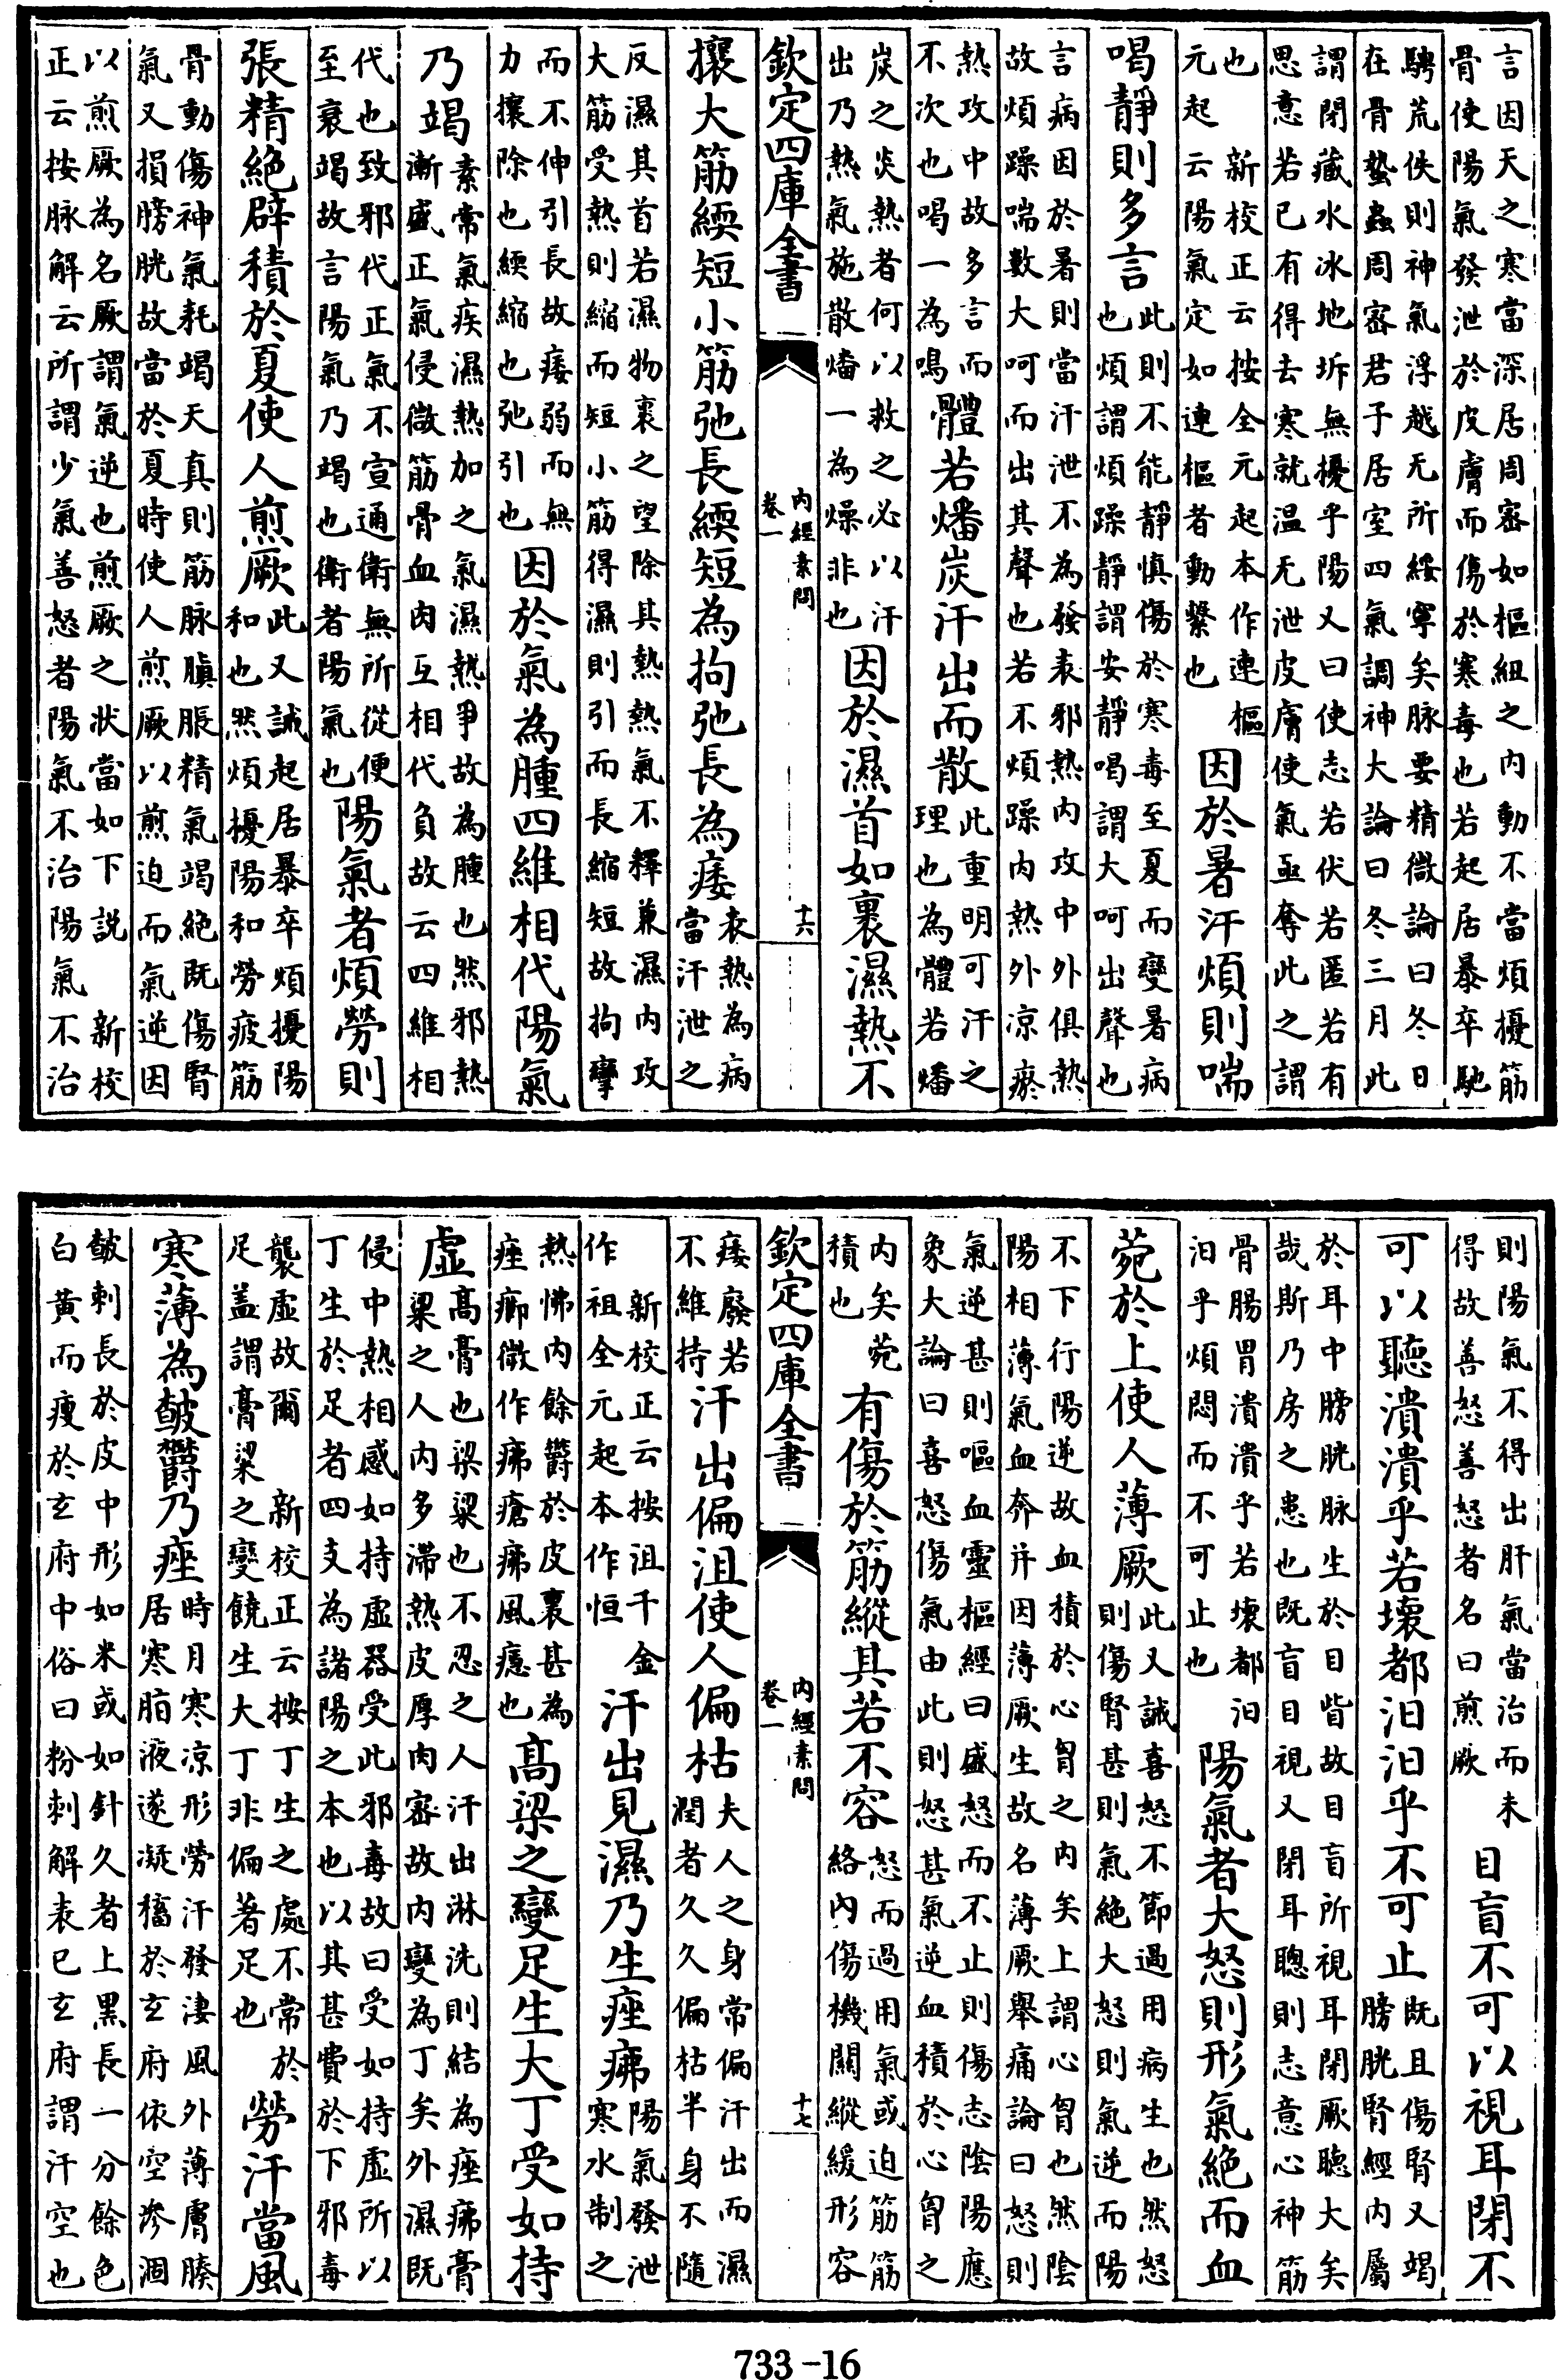 言因天之寒當深居周密如樞紐之内動不當煩擾筋
骨使陽氣發泄於皮膚而傷於寒毒也若起居暴卒馳
騁荒佚則神氣浮越无所綏寧矣脉要精微論曰冬日
在骨蟄蟲周密君子居室四氣調神大論曰冬三月此
謂閉藏水冰地坼無擾乎陽又曰使志若伏若匿若有
思意若已有得去寒就温无泄皮膚使氣亟奪此之謂
也 新校正云按全元起本作連樞
元起云陽氣定如連樞者動繫也
因於暑汗煩則喘
喝靜則多言
此則不能靜慎傷於寒毒至夏而變暑病
也煩謂煩躁靜謂安靜喝謂大呵出聲也
言病因於暑則當汗泄不為發表邪熱内攻中外俱熱
故煩躁喘數大呵而出其聲也若不煩躁内熱外凉瘀
熱攻中故多言而
不次也喝一為鳴
體若燔炭汗出而散
此重明可汗之
理也為體若燔
炭之炎熱者何以救之必以汗
出乃熱氣施散燔一為燥非也
因於濕首如裹濕熱不
欽定四庫全書
内經素問
卷一
十六
攘大筋緛短小筋弛長緛短為拘弛長為痿
表熱為病
當汗泄之
反濕其首若濕物裹之望除其熱熱氣不釋兼濕内攻
大筋受熱則縮而短小筋得濕則引而長縮短故拘攣
而不伸引長故痿弱而無
力攘除也緛縮也弛引也
因於氣為腫四維相代陽氣
乃竭
素常氣疾濕熱加之氣濕熱爭故為腫也然邪熱
漸盛正氣侵微筋骨血肉互相代負故云四維相
代也致邪代正氣不宣通衛無所從便
至衰竭故言陽氣乃竭也衛者陽氣也
陽氣者煩勞則
張精絶辟積於夏使人煎厥
此又誡起居暴卒煩擾陽
和也然煩擾陽和勞疲筋
骨動傷神氣耗竭天真則筋脉䐜脹精氣竭絶既傷腎
氣又損膀胱故當於夏時使人煎厥以煎迫而氣逆因
以煎厥為名厥謂氣逆也煎厥之状當如下説 新校
正云按脉解云所謂少氣善怒者陽氣不治陽氣不治
則陽氣不得出肝氣當治而未
得故善怒善怒者名曰煎厥
目盲不可以視耳閉不
可以聽潰潰乎若壞都汨汨乎不可止
既且傷腎又竭
膀胱腎經内屬
於耳中膀胱脉生於目眥故目盲所視耳閉厥聽大矣
哉斯乃房之患也既盲目視又閉耳聰則志意心神筋
骨腸胃潰潰乎若壞都汨
汨乎煩悶而不可止也
陽氣者大怒則形氣絶而血
菀於上使人薄厥
此又誡喜怒不節過用病生也然怒
則傷腎甚則氣絶大怒則氣逆而陽
不下行陽逆故血積於心胷之内矣上謂心胷也然陰
陽相薄氣血奔并因薄厥生故名薄厥舉痛論曰怒則
氣逆甚則嘔血靈樞經曰盛怒而不止則傷志陰陽應
象大論曰喜怒傷氣由此則怒甚氣逆血積於心胷之
内矣菀
積也
有傷於筋縱其若不容
怒而過用氣或迫筋筋
絡内傷機關縱緩形容
欽定四庫全書
内經素問
卷一
十七
痿廢若
不維持
汗出偏沮使人偏枯
夫人之身常偏汗出而濕
潤者久久偏枯半身不隨
新校正云按沮千金
作祖全元起本作恒
汗出見濕乃生痤疿
陽氣發泄
寒水制之
熱怫内餘鬱於皮裏甚為
痤癤微作疿瘡疿風癮也
髙梁之變足生大丁受如持
虛
髙膏也梁粱也不忍之人汗出淋洗則結為痤疿膏
梁之人内多滯熱皮厚肉密故内變為丁矣外濕既
侵中熱相感如持虛器受此邪毒故曰受如持虛所以
丁生於足者四支為諸陽之本也以其甚費於下邪毒
襲虛故爾 新校正云按丁生之處不常於
足盖謂膏梁之變饒生大丁非偏著足也
勞汗當風
寒薄為皶鬱乃痤
時月寒凉形勞汗發淒風外薄膚腠
居寒脂液遂凝穯於玄府依空滲涸
皶刺長於皮中形如米或如針久者上黑長一分餘色
白黄而瘦於玄府中俗曰粉刺解表已玄府謂汗空也
733-16